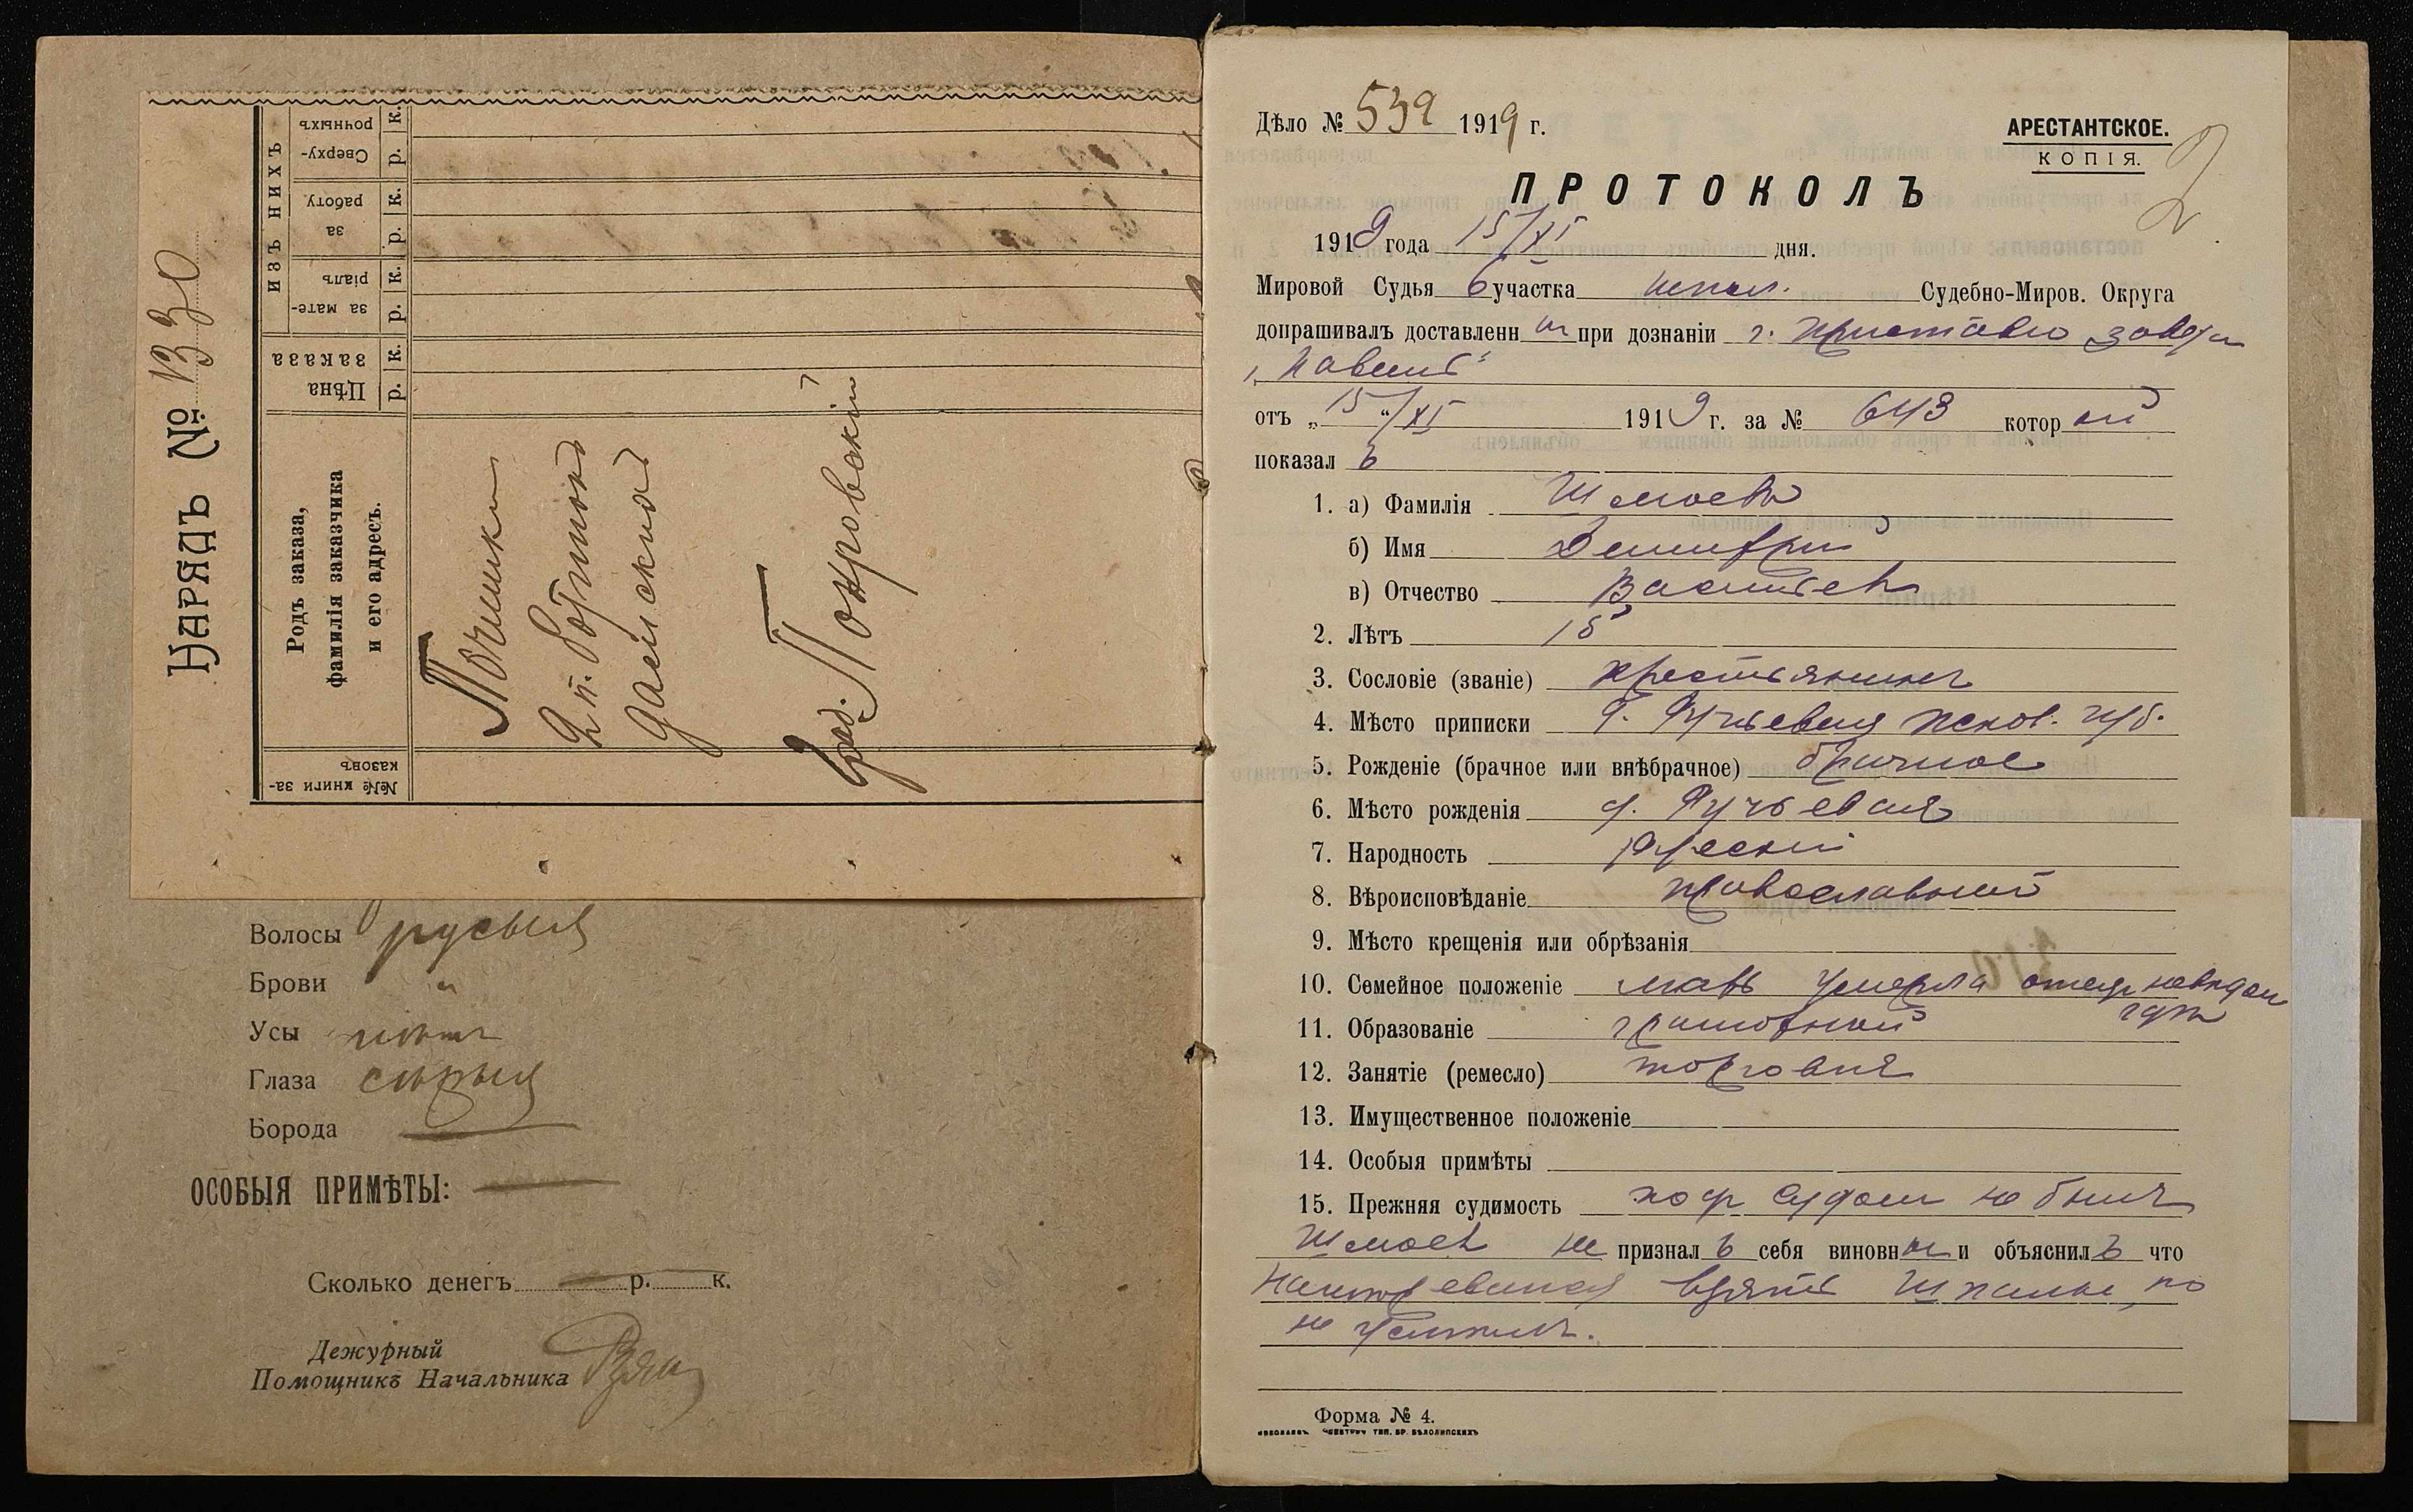 НАРЯДЪ № 1330
Родъ заказа,
фамилія заказчика
и его адресъ.
Цѣна
заказа
р. к.
ИЗЪ НИХЪ
за мате-
ріалъ
р. к.
за
работу
р. к.
Сверху-
рочныхъ
р. к.
№№ книги за-
казовъ
Починки
2 п.
Покровскій
Волосы русыя
Брови "
Усы
Глаза сѣрыя
Борода —
ОСОБЫЯ ПРИМѢТЫ: —
Сколько денегъ — р. к.
Дежурный
Помощникъ Начальника
Дѣло № 539 1919 г.
АРЕСТАНТСКОЕ.
КОПІЯ.
2
ПРОТОКОЛЪ
1919 года 15/XI дня.
Мировой Судья 6 участка Судебно-Миров. Округа
допрашивалъ доставленн при дознаніи г. Приставомъ завода
„Наваль"
отъ „15"/XI 1919 г. за № 643 который
показалъ
1. а) Фамилія Шмоевъ
б) Имя Дмитрий
в) Отчество Васильев
2. Лѣтъ 15
3. Сословіе (званіе) крестьянинъ
4. Мѣсто приписки Псков. губ.
5. Рожденіе (брачное или внѣбрачное) брачное
6. Мѣсто рожденія д.
7. Народность русскій
8. Вѣроисповѣданіе православный
9. Мѣсто крещенія или обрѣзанія
10. Семейное положеніе мать умерла отецъ неведом
гдѣ
11. Образованіе грамотный
12. Занятіе (ремесло) торговля
13. Имущественное положеніе
14. Особыя примѣты
15. Прежняя судимость под судом не былъ
Шмоев не призналъ себя виновным и объяснилъ что
взять шпалы, но
не успѣлъ.
Форма № 4.